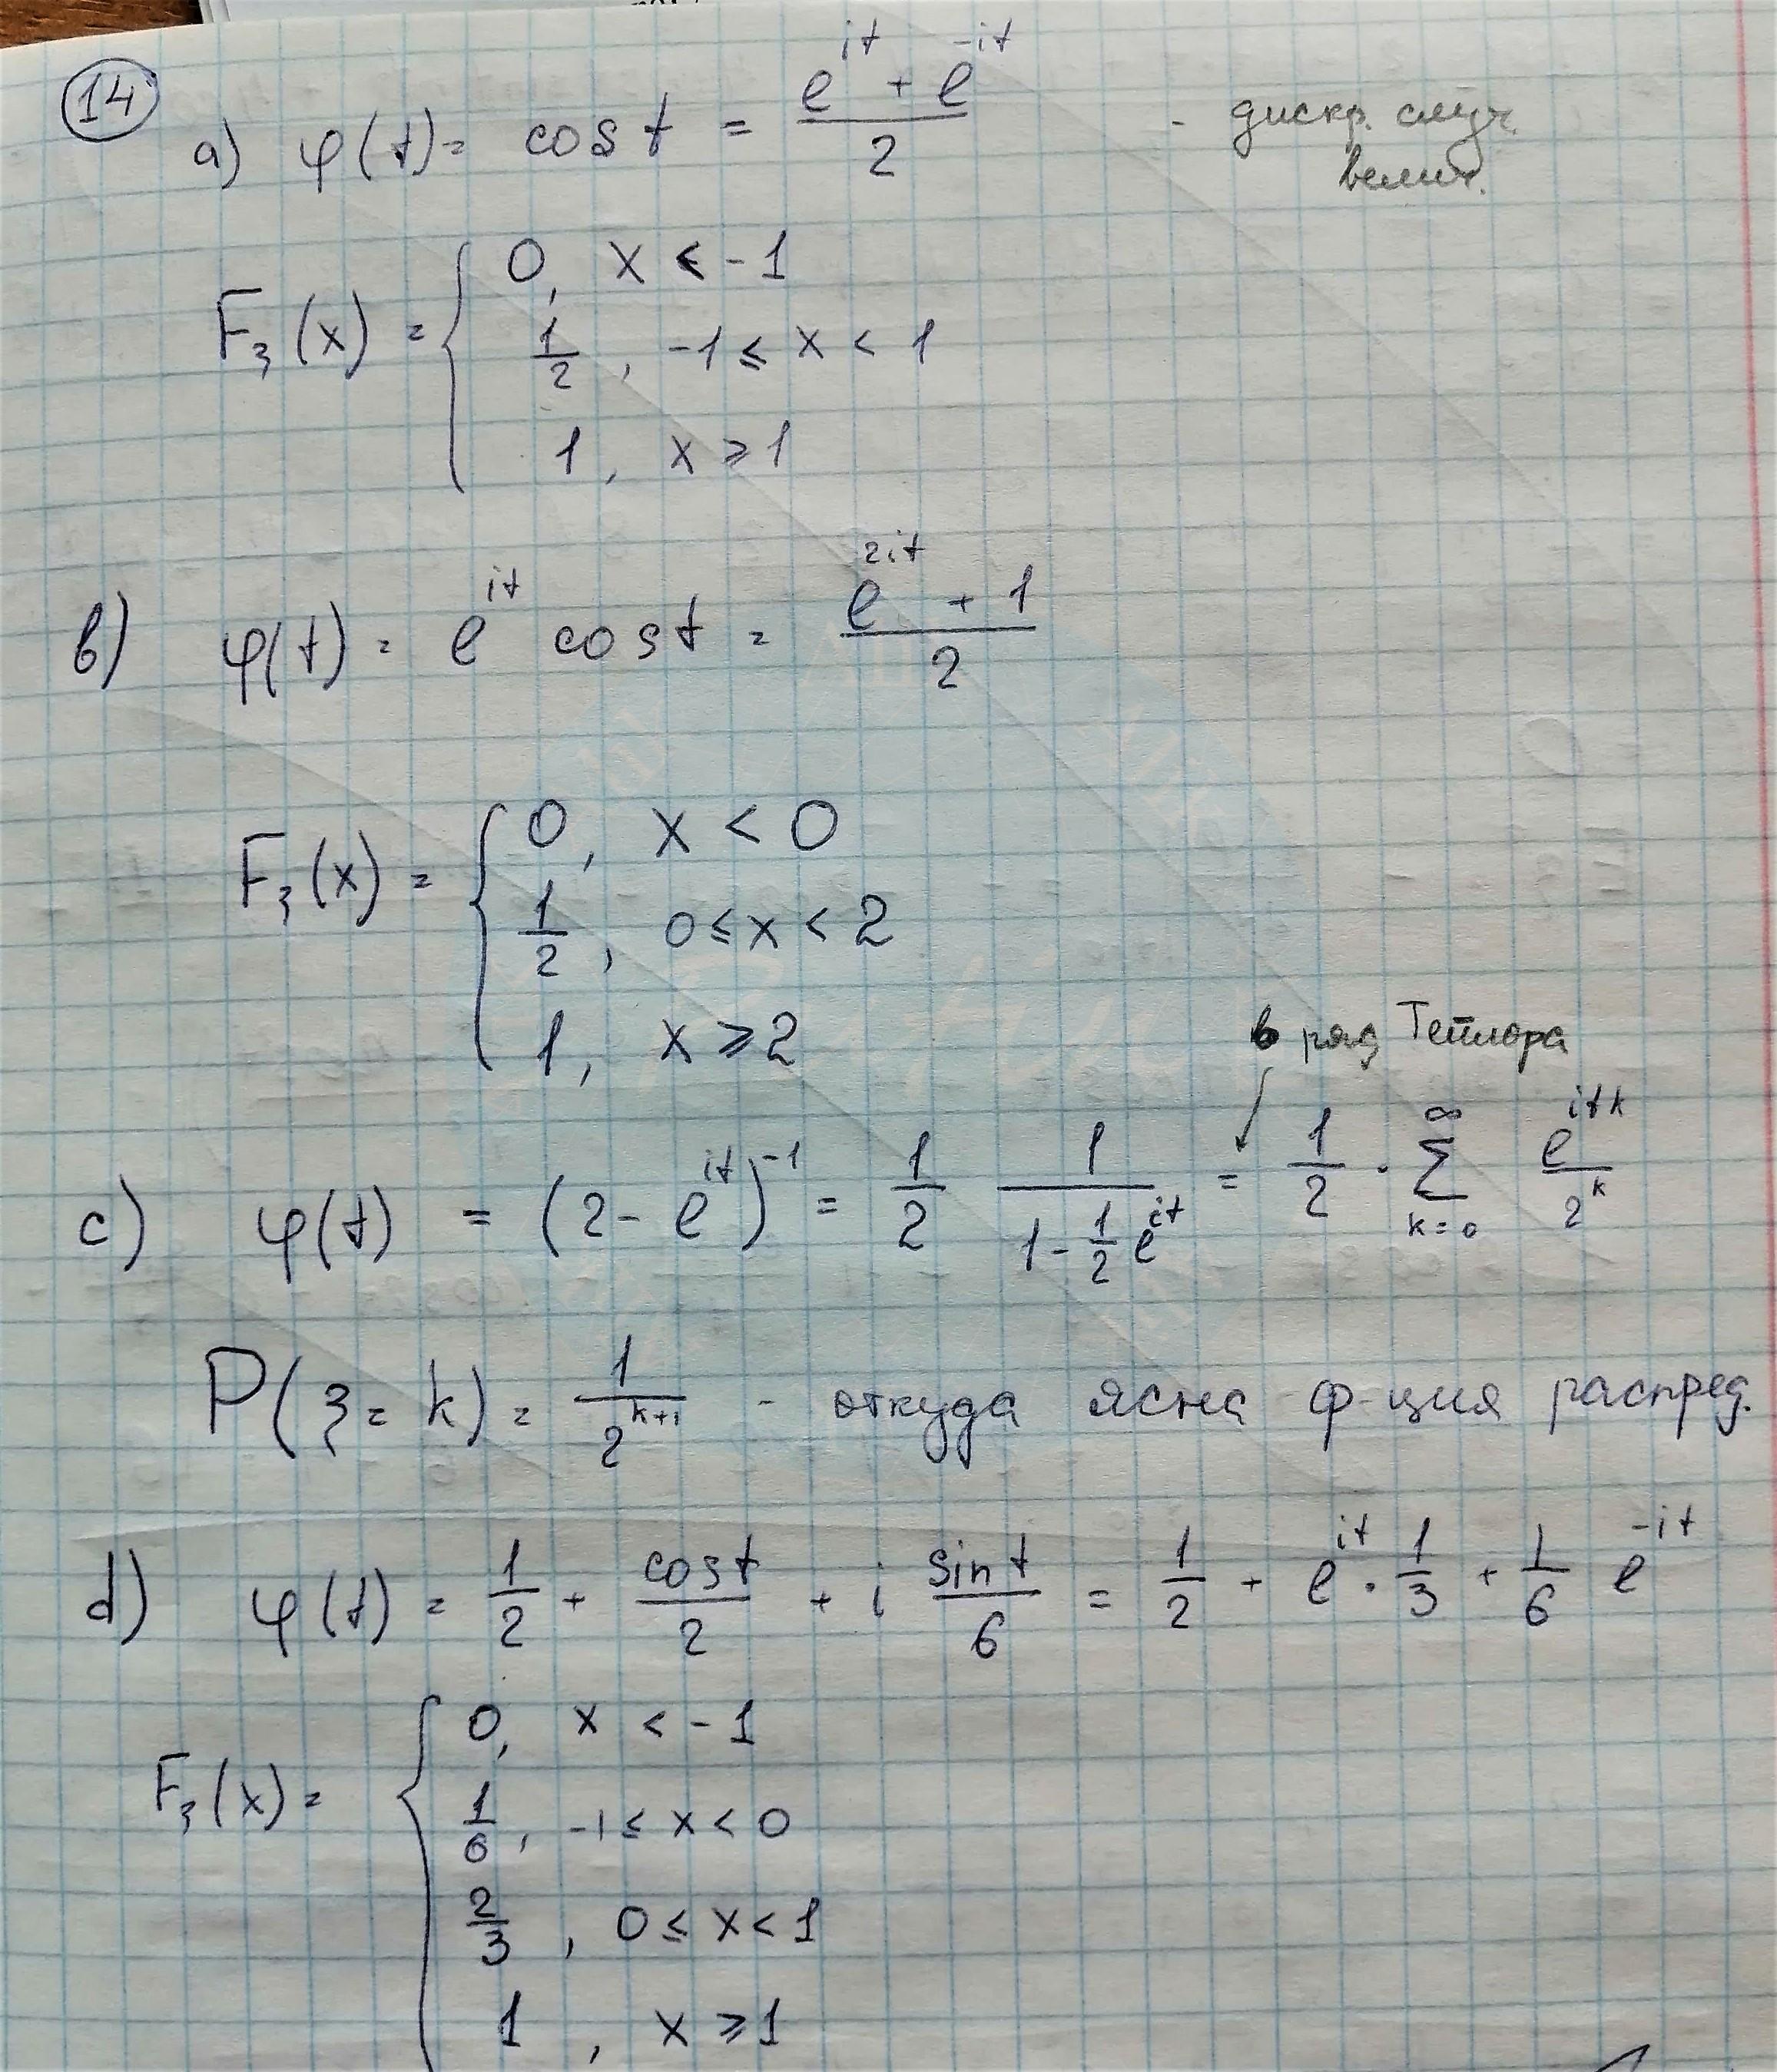 14
a) φ(t) = cos t = (e^{it} + e^{-it})/2 - дискр. случ. велич.
F_ξ(x) = { 0, x < -1
1/2, -1 ≤ x < 1
1, x ≥ 1
b) φ(t) = e^{it} cos t = (e^{2it} + 1)/2
F_ξ(x) = { 0, x < 0
1/2, 0 ≤ x < 2
1, x ≥ 2
в ряд Тейлора
c) φ(t) = (2 - e^{it})^{-1} = 1/2 1/(1 - 1/2 e^{it}) = 1/2 · ∑_{k=0}^{∞} e^{itk}/2^k
P(ξ = k) = 1/2^{k+1} - откуда ясна ф-ция распред.
d) φ(t) = 1/2 + cos t/2 + i sin t/6 = 1/2 + e^{it} · 1/3 + 1/6 e^{-it}
F_ξ(x) = { 0, x < -1
1/6, -1 ≤ x < 0
2/3, 0 ≤ x < 1
1, x ≥ 1